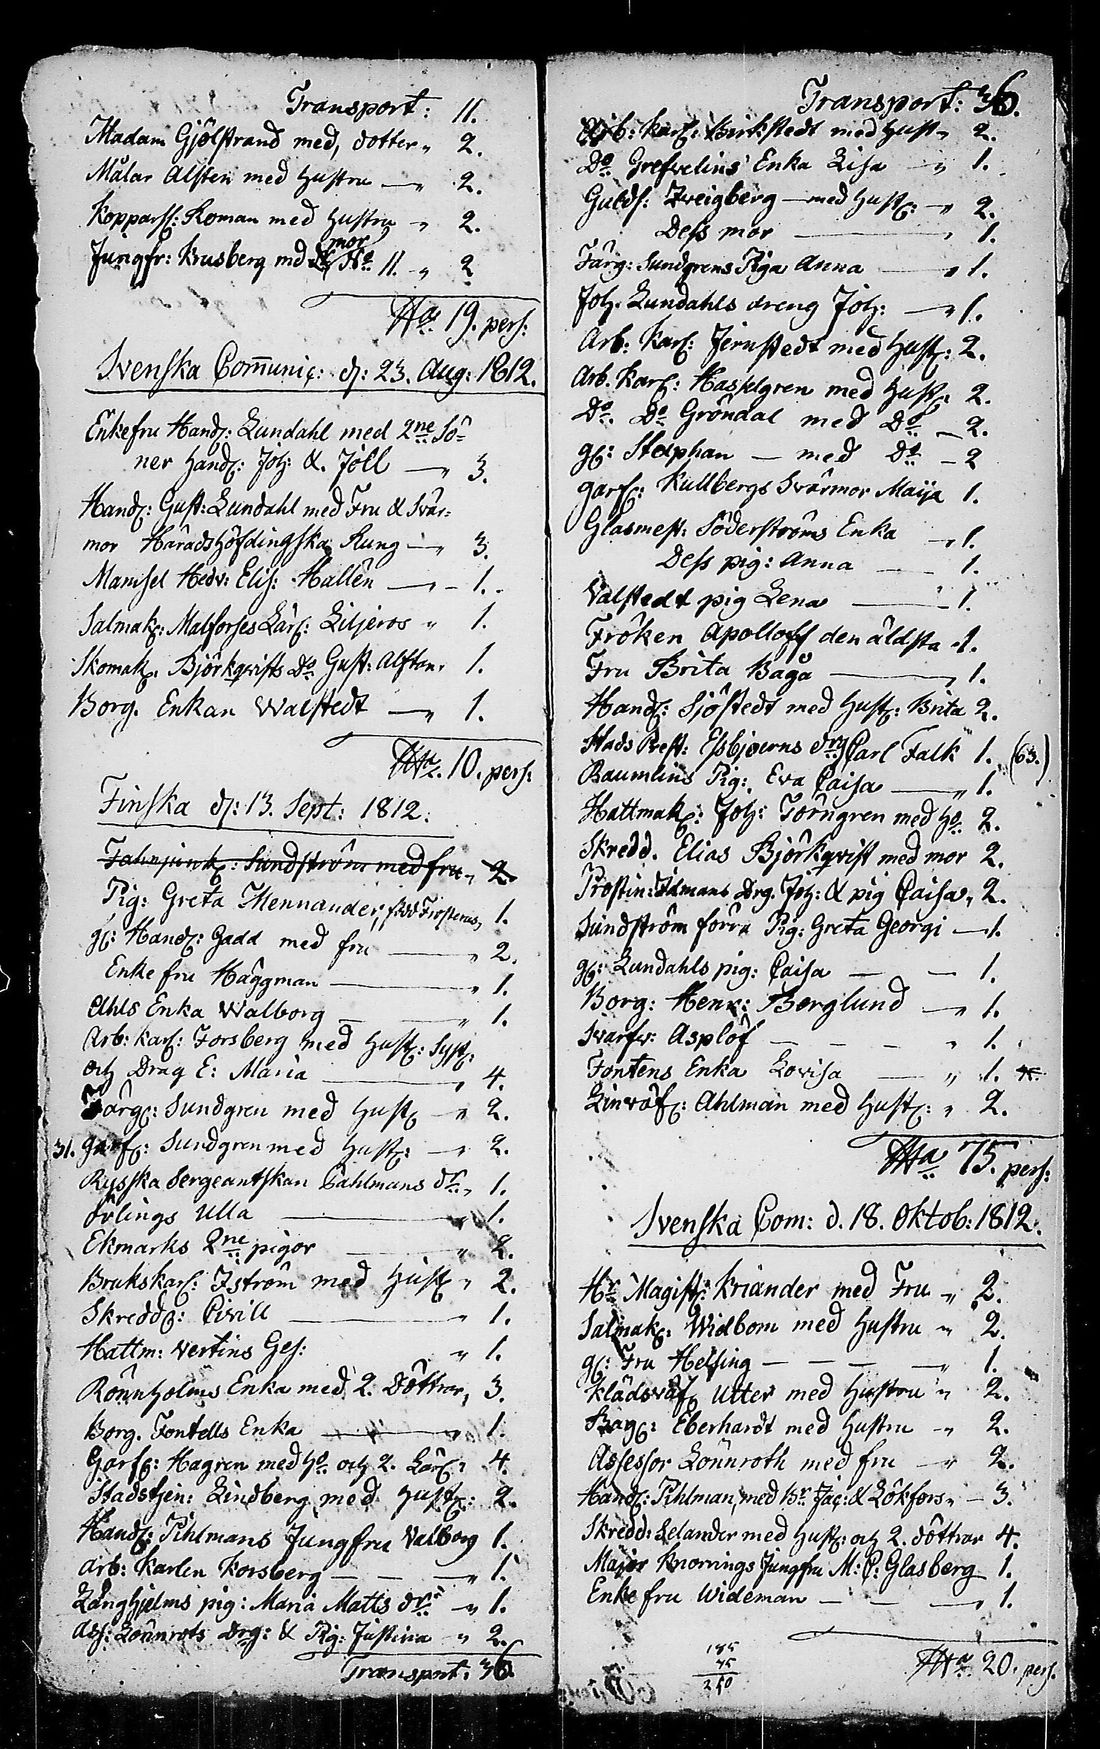 Transport: 11.
Madam Gjölstrand med, dotter " 2.
Målar Alsten med hustru — " 2.
Kopparsl: Roman med hustru " 2.
mor
Jungfr: Busberg md No 11. " 2
Sa 19. pers:
Svenska Comunic: d: 23. Aug: 1812.
Enkefru Handl: Lundahl med 2ne Sö-
ner handl: Joh: & Joll — " 3.
Handl: Gust: Lundahl med Fru & Svär-
mor Häradshöfdingska Rung — " 3.
Mamsel Hedv: Elis: Hallên — " – 1.
Salmak: Malforses Lärl: Liljeros " 1.
Skomak. Björkqvists Do Gust: Alsten " 1.
Borg. Enkan Walstedt — " 1.
Sa. 10. pers:
Finska d: 13. Sept: 1812.
Sundström med fru " 2.
Pig: Greta Mennander, 1.
gl: Handl: Gadd med fru — " 2.
Enke fru Häggman — " 1.
Ahls Enka Walborg — " 1.
Arb: karl: Forsberg med Hust:
och Drag E: Maria — " 4.
Färg: Sundgren med Hust — " 2.
31. garf: Sundgren med Hust: — " 2.
Rysska Sergeantskan Cahlmans dr. " 1.
Örlings Ulla — 1.
Ekmarks 2ne pigor — " 2.
Brukskarl: Iström med Hust " 2.
Skredd: Civill — " 1.
Hattm: Vertins Ges: " 1.
Rönnholms Enka med 2. Döttrar, 3.
Borg. Fontells Enka — " 1.
Garf: Hagren med Ho. och 2. Lärl: 4.
Stadstjen: Lindberg med Hust: 2.
Handl: Pihlmans Jungfru Valborg 1.
Arb: Karlen Korsberg — — " 1.
Långhjelms pig: Maria Matts dr: " 1.
Ass: Lönnrots Drg: & Pig: Justina " 2.
Transport: 36.
Transport: 36.
Arb: Karl: Birkstedt med Hust " 2.
Do Grefvelius' Enka Lisa " 1.
Gulds: Zweigberg — med Hust: — " 2.
Dess mor — " 1.
Färg: Sundgrens Piga Anna — " 1.
Joh. Lundahls dreng Joh: — " 1.
Arb: Karl: Jernstedt med Hust: 2.
Arb. Karl: Hasselgren med Hust: 2.
Do. Do Gröndal med Do – 2.
gl: Staphan — med Do – 2
garf: Kullbergs Svärmor Maija 1.
Glasmest: Söderströms Enka — " 1.
Dess pig: Anna — 1.
Valstedt pig Lena — " 1.
Fröken Apolloff den äldsta " 1.
Fru Brita Båga — " 1.
Handl: Sjöstedt med Hust: Brita 2.
Stads Prest: Esbjoerns drg Carl Falk 1. (63.)
Baumlins Pig: Eva Caisa — " 1.
Hattmak: Joh: Törngren med Ho. 2.
Skredd. Elias Björkqvist med mor 2.
Prostin: Idmans Drg. Joh: & pig Caisa, 2.
Sundström förra Pig: Greta Georgi — 1.
gl: Lundahls pig: Caisa — — 1.
Borg: Henr: Berglund — " 1.
Svarfv: Asplöf — — — " 1.
Fontens Enka Lovisa — " 1.
Linväf: Ahlman med Hust: " 2.
Sa 75. pers:
Svenska Com: d. 18. Oktob: 1812.
Hr Magist: Kriander med Fru " 2.
Salmak: Widbom med Hustru " 2.
gl: Fru Helsing — — — " 1.
Klädsväf Utter med Hustru " 2.
Bag: Eberhardt med Hustru " 2.
Assessor Lönnroth med fru — " 2.
Handl: Pihlman, med Br. Jac: & Lökfors " – 3.
Skredd: Lelander med Hust: och 2. döttrar 4.
Major Knorrings Jungfru M: C: Glasberg 1.
Enke fru Wideman — — — " 1.
Sa. 20. pers.
185
45
210